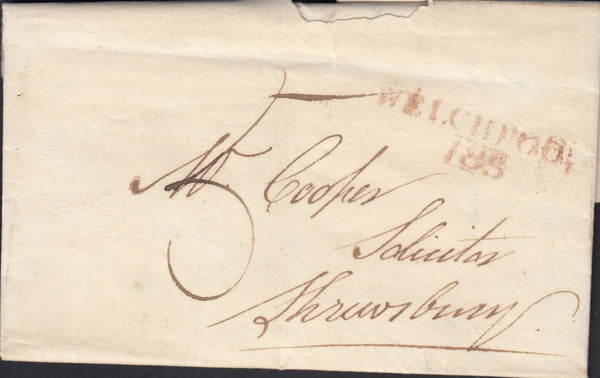 WELCHPOOL
183
5
Mr. Cooper
Solicitor
Shrewsbury